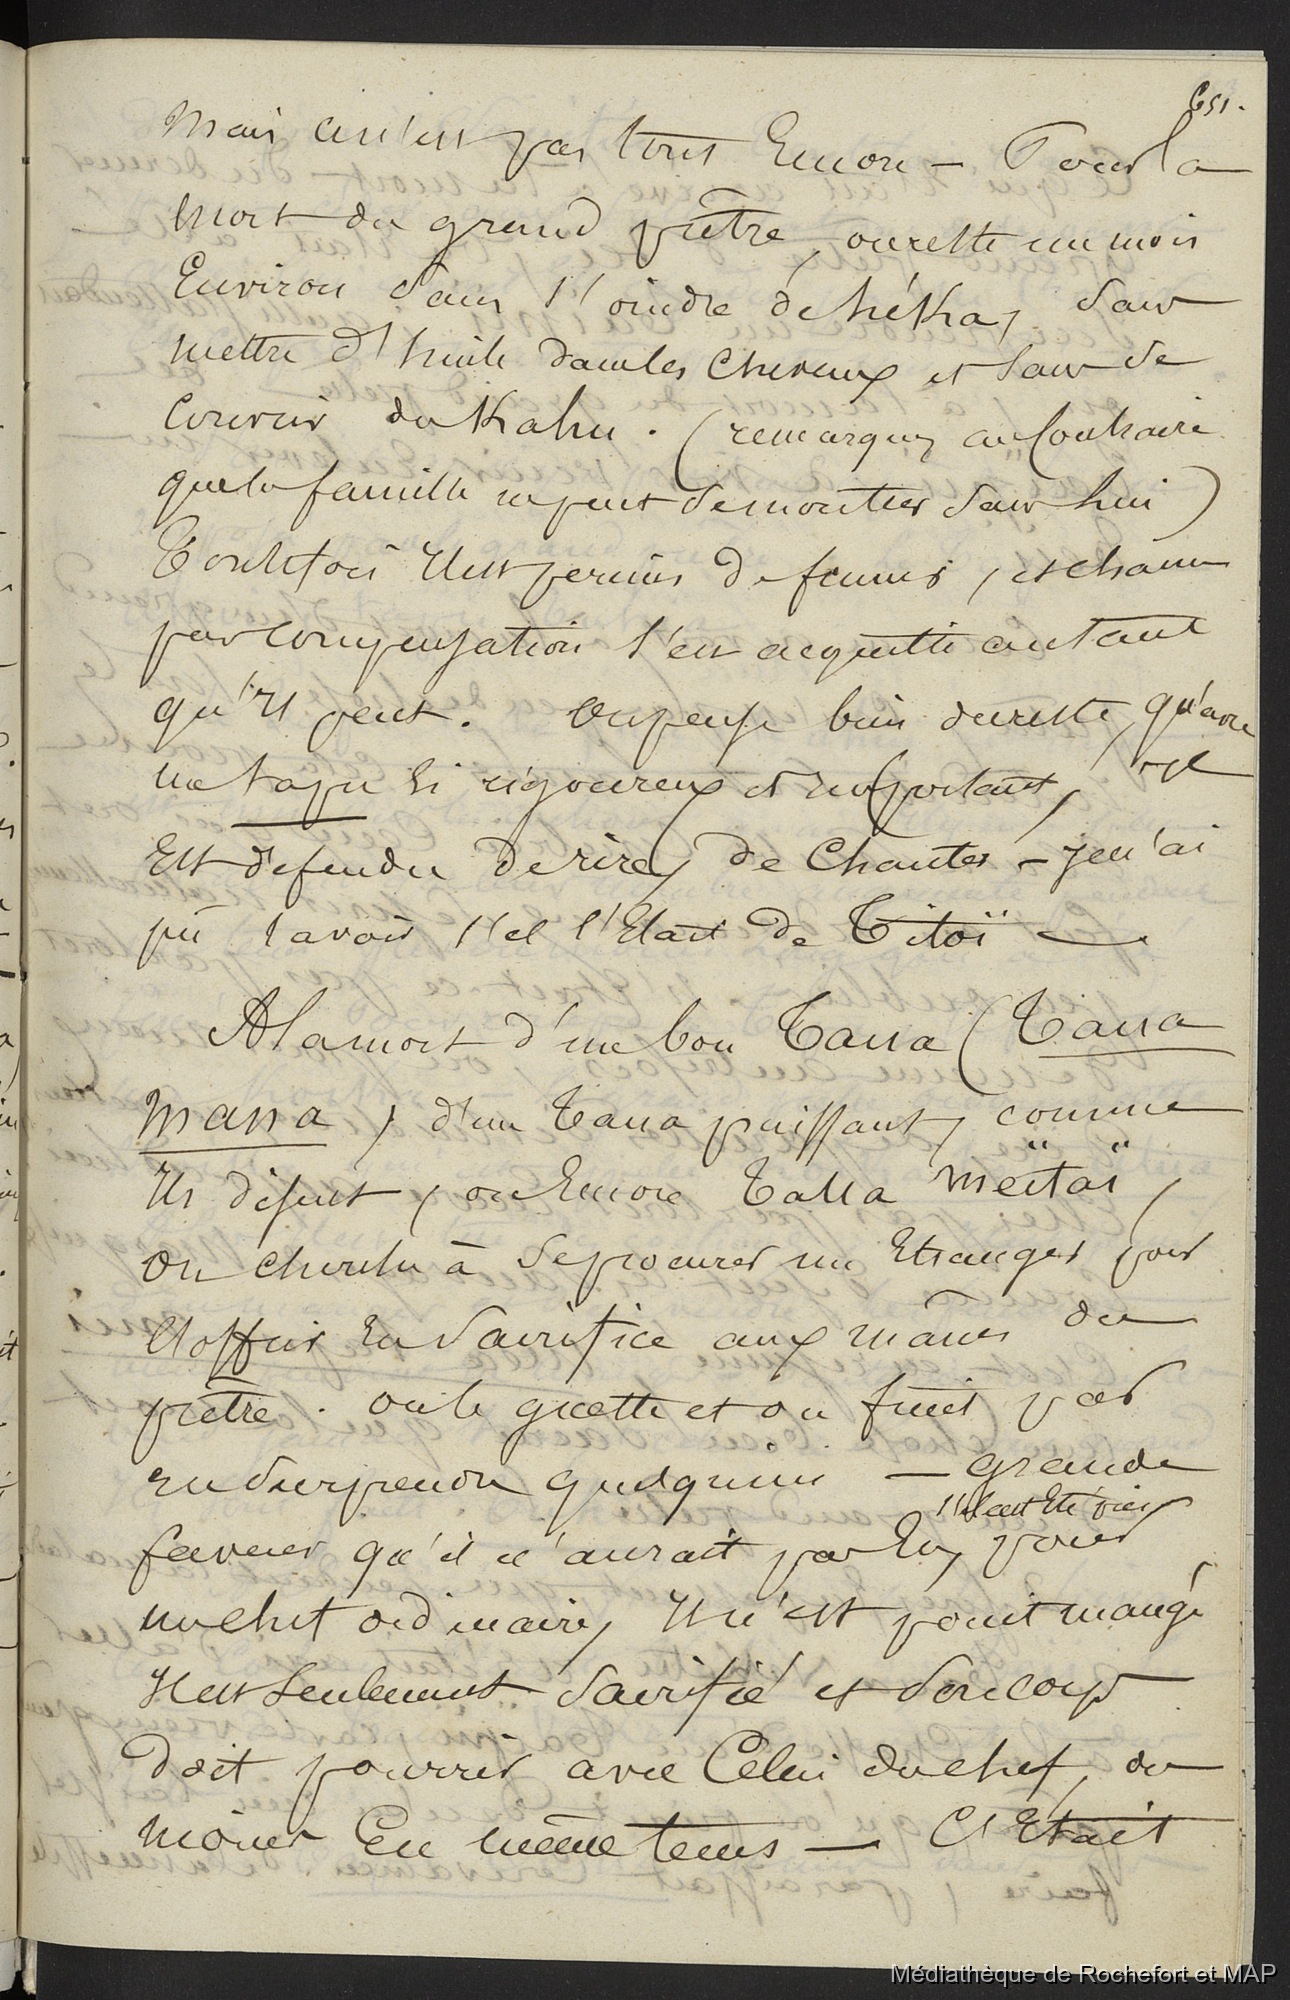 651.
Mais ce n'est pas tout Encore — Pour la
mort du grand prêtre, on reste un mois
Environ sans s'oindre de héka, sans
mettre d'huile dans les cheveux et sans se
couvrir du Kahu. (remarquez au contraire
que la famille ne peut se montrer sans lui)
Toutefois Il est permis de fumer, et chacun
par compensation s'en acquitte autant
qu'Il peut. On pense bien du reste, qu'avec
un tapu si rigoureux et important, Il
Est défendu de rire, de chanter — je n'ai
pû savoir s'il l'Etait de Titoï —
A la mort d'un bon Taua (Taua
mana, d'un Taua puissant, comme
Ils disent, ou Encore Taua meïtaï,
on cherche à se procurer un Etranger pour
l'offrir En Sacrifice aux mânes du
prêtre. on le guette et on finit par
en surprendre quelqu'un — grande
s'il eut été pris
faveur qu'il n'aurait pas Eu, pour
un chef ordinaire, Il n'est point mangé
Il est seulement Sacrifié et son corps
doit pourrir avec Celui du chef, du
moins En même tems — C'Etait
Médiathèque de Rochefort et MAP